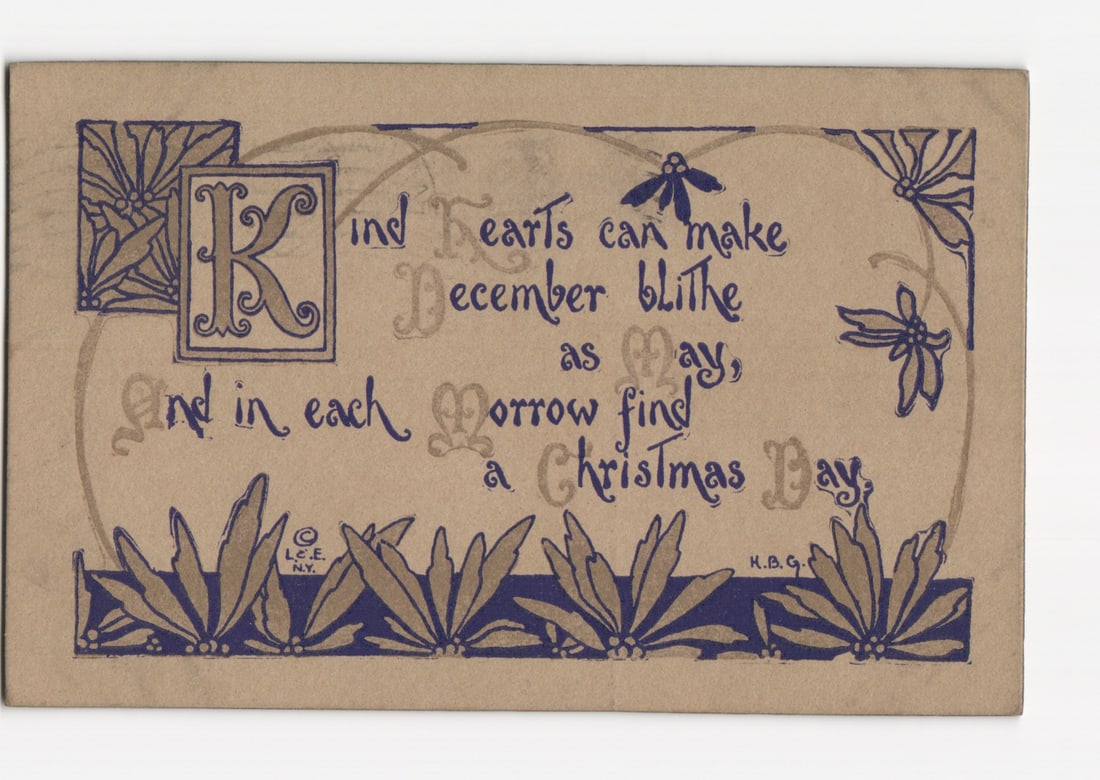 Kind Hearts can make
December blithe
as May,
And in each Morrow find
a Christmas Day.
© 
L & E.
N.Y.
H.B.G.